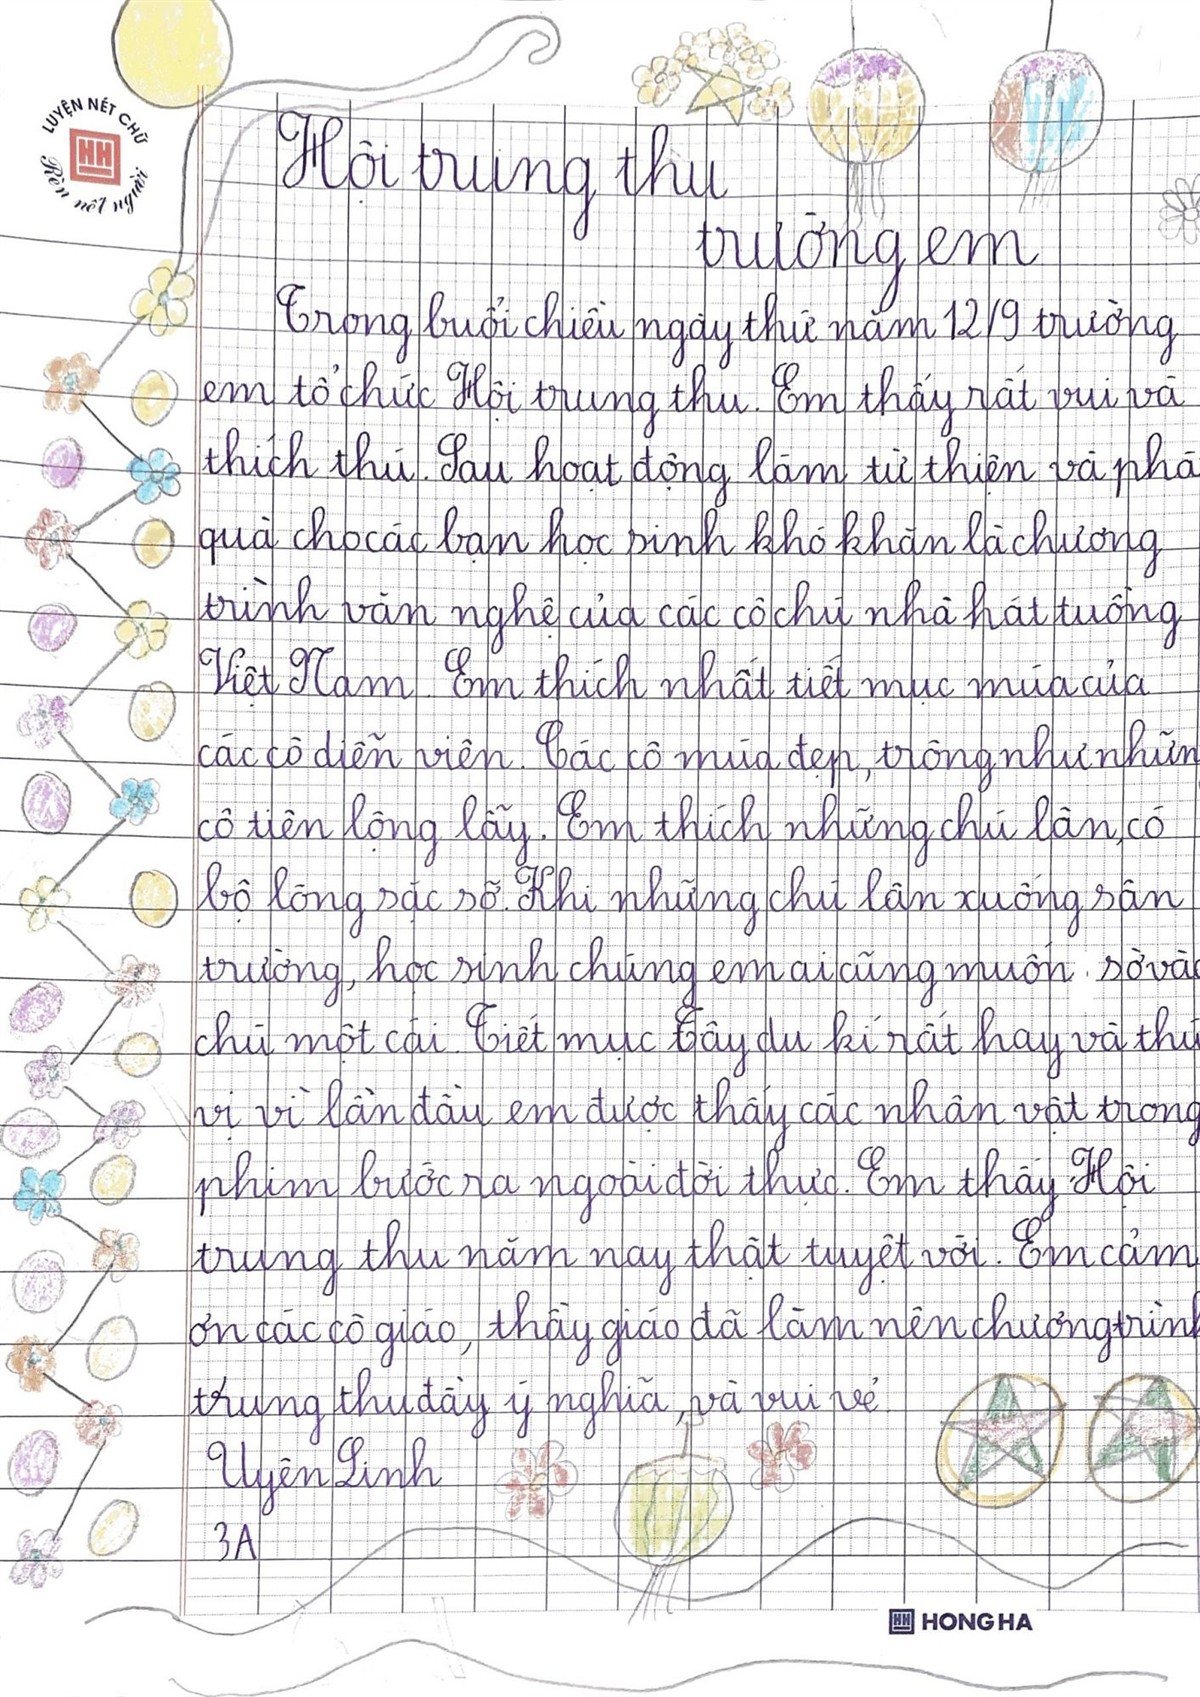 LUYỆN NÉT CHỮ
HH
Rèn nết người
Hội trung thu
trường em
Trong buổi chiều ngày thứ năm 12/9 trường
em tổ chức Hội trung thu. Em thấy rất vui và
thích thú. Sau hoạt động làm từ thiện và phá
quà cho các bạn học sinh khó khăn là chương
trình văn nghệ của các cô chú nhà hát tuồng
Việt Nam. Em thích nhất tiết mục múa của
các cô diễn viên. Các cô múa đẹp, trông như nhữn
cô tiên lộng lẫy. Em thích những chú lân, có
bộ lông sặc sỡ. Khi những chú lân xuống sân
trường, học sinh chúng em ai cũng muốn sờ vào
chú một cái. Tiết mục Tây du kí rất hay và thú
vị vì lần đầu em được thấy các nhân vật trong
phim bước ra ngoài đời thực. Em thấy Hội
trung thu năm nay thật tuyệt vời. Em cảm
ơn các cô giáo, thầy giáo đã làm nên chương trình
trung thu đầy ý nghĩa, và vui vẻ.
Uyên Linh
3A
HH HONG HA